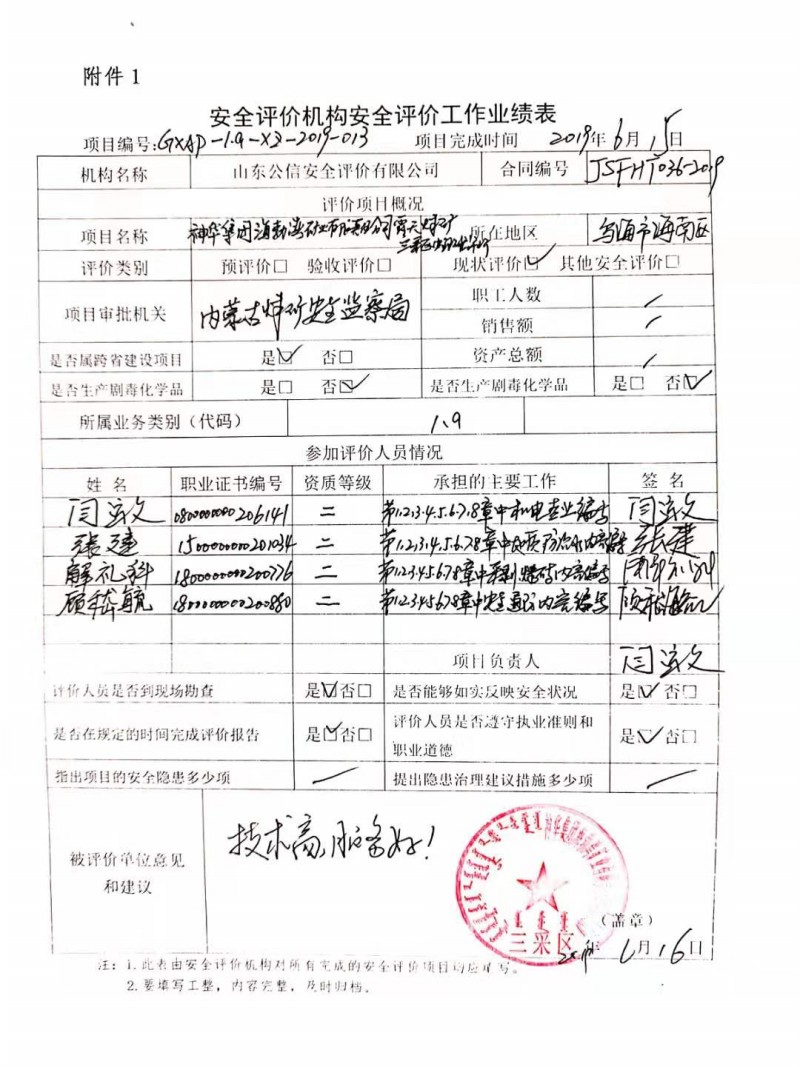 附件 1
安全评价机构安全评价工作业绩表
项目编号:GXAP-1.9-XZ-2019-013 项目完成时间 2019年6月15日
机构名称 山东公信安全评价有限公司 合同编号 JSFHT036-2019
评价项目概况
项目名称 神华集团海勃湾矿业有限责任公司露天煤矿 所在地区 乌海市海南区
评价类别 预评价□ 验收评价□ 现状评价☑ 其他安全评价□
项目审批机关 内蒙古煤矿安全监察局 职工人数 /
销售额 /
资产总额 /
是否属跨省建设项目 是☑ 否□
是否生产剧毒化学品 是□ 否☑ 是否生产剧毒化学品 是□ 否☑
所属业务类别（代码） 1.9
参加评价人员情况
姓 名 职业证书编号 资质等级 承担的主要工作 签 名
闫 文 0800000000206141 二 第1.2.3.4.5.6.7.8章中机电专业编号 闫 文
张建 1500000000201034 二 第1.2.3.4.5.6.7.8章中 张建
解礼科 1800000000200776 二 第1.2.3.4.5.6.7.8章中 内容编号
顾 航 1800000000200880 二 第1.2.3.4.5.6.7.8章中 内容编号
项目负责人 闫 文
评价人员是否到现场勘查 是☑否□ 是否能够如实反映安全状况 是☑ 否□
是否在规定的时间完成评价报告 是☑否□ 评价人员是否遵守执业准则和
职业道德 是☑否□
指出项目的安全隐患多少项 / 提出隐患治理建议措施多少项 /
被评价单位意见
和建议
技术高,服务好!
三采区
（盖章）
年 6月16日
注：1.此表由安全评价机构对所有完成的安全评价项目均应填写。
2.要填写工整，内容完整，及时归档。